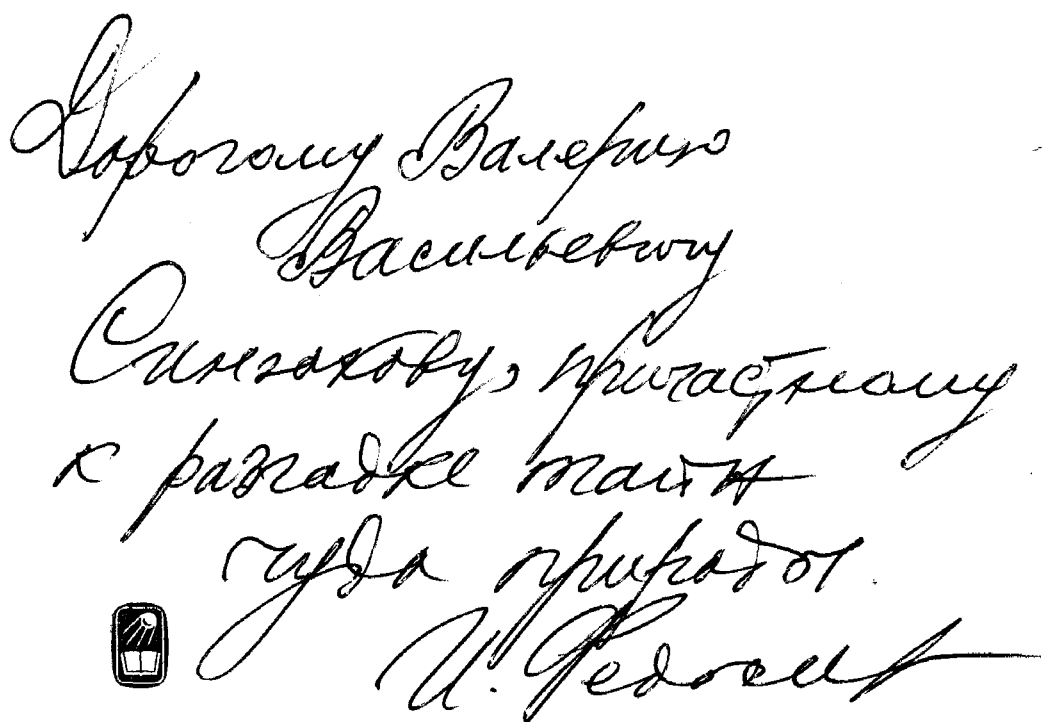 Дорогому Валерию
Васильевичу
Синюкову, причастному
к разгадке тайн
чуда природы.
И. Федосеев